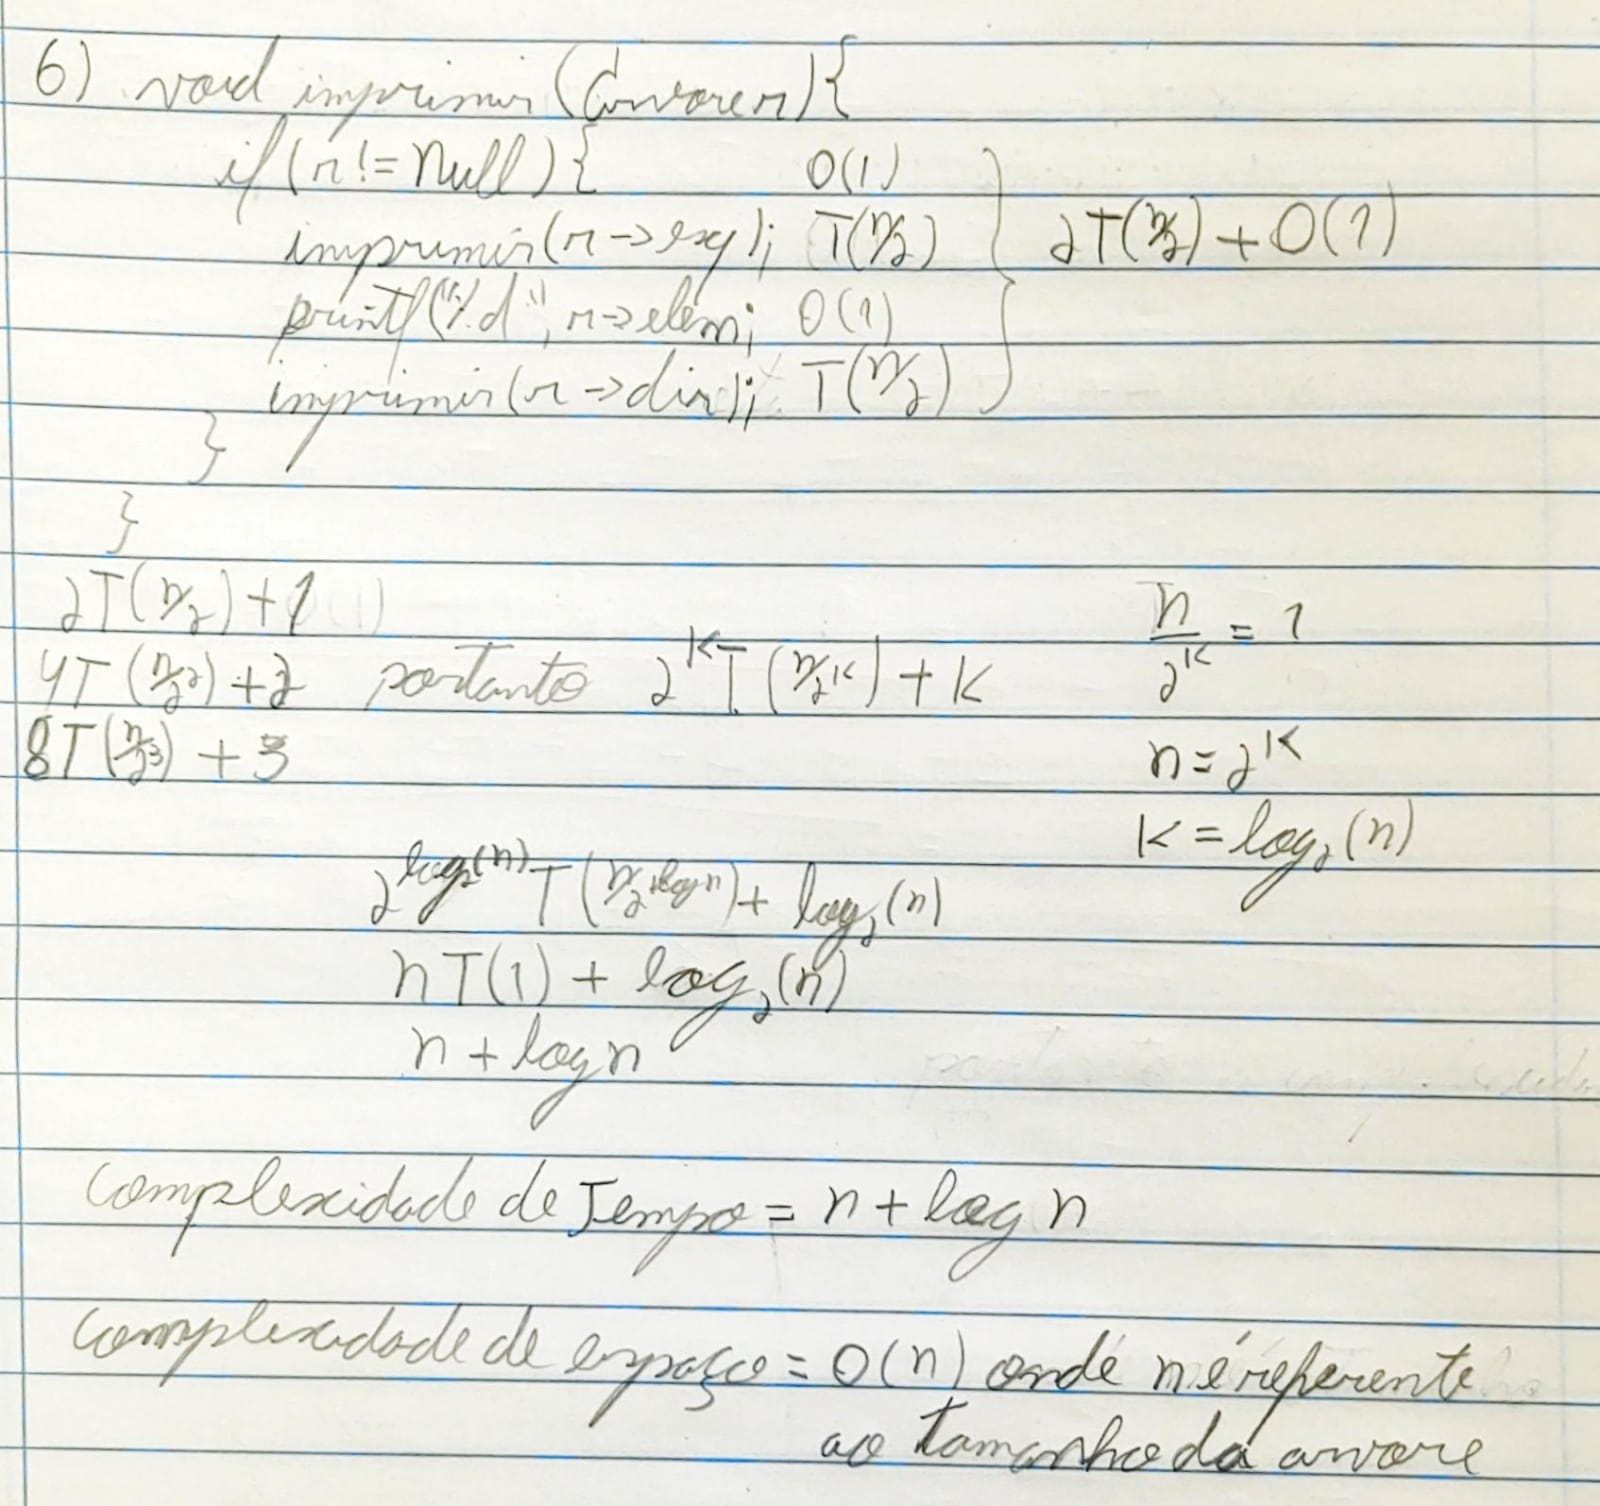 6) void imprimir(arvore r){
if(r != Null){ O(1)
imprimir(r->esq); T(n/2) 2T(n/2) + O(1)
printf("%d", r->elem; O(1)
imprimir(r->dir); T(n/2)
}
}
2T(n/2) + 1
4T(n/2²) + 2 portanto 2^K T(n/2^K) + K
8T(n/2³) + 3
n/2^K = 1
n = 2^K
K = log₂(n)
2^log₂(n) T(n/2^log n) + log₂(n)
nT(1) + log₂(n)
n + log n
Complexidade de Tempo = n + log n
Complexidade de espaço = O(n) onde n é referente
ao tamanho da arvore